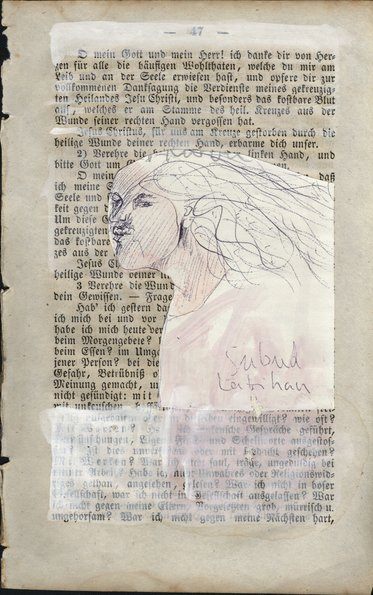 — 47 —
O mein Gott und mein Herr! ich danke dir von Her-
zen für alle die häufigen Wohlthaten, welche du mir am
Leib und an der Seele erwiesen hast, und opfere dir zur
vollkommenen Danksagung die Verdienste meines gekreuzig-
ten Heilandes Jesu Christi, und besonders das kostbare Blut
auf, welches er am Stamme des heil. Kreuzes aus der
Wunde seiner rechten Hand vergossen hat.
Jesus Christus, für uns am Kreuze gestorben durch die
heilige Wunde deiner rechten Hand, erbarme dich unser.
2) Verehre die linken Hand, und
bitte Gott um
O mein daß
ich meine S
Seele und
keit gegen d
Um diese G
gekreuzigten
das kostbare
zes aus der
Jesus Ch
heilige Wunde deiner li
3 Verehre die Wun
dein Gewissen. — Frage
Hab' ich gestern da
ich mich bei und vor
habe ich mich heute ver
beim Morgengebete?
beim Essen? im Umga
jener Person? bei die
Gefahr, Betrübniß o
Meinung gemacht, u
nicht gesündigt: mit
mit unkeuschen
Subud
eingewilligt? wie oft?
unkeusche Gespräche geführt,
Ist dies
War ich faul, träge, ungeduldig bei
der Arbeit? Hab' ich
gethan, angesehen, gelesen? War ich nicht in böser
Gesellschaft, war ich nicht in Gesellschaft ausgelassen? War
ich nicht gegen meine Eltern, Vorgesetzten grob, mürrisch u.
ungehorsam? War ich nicht gegen meine Nächsten hart,